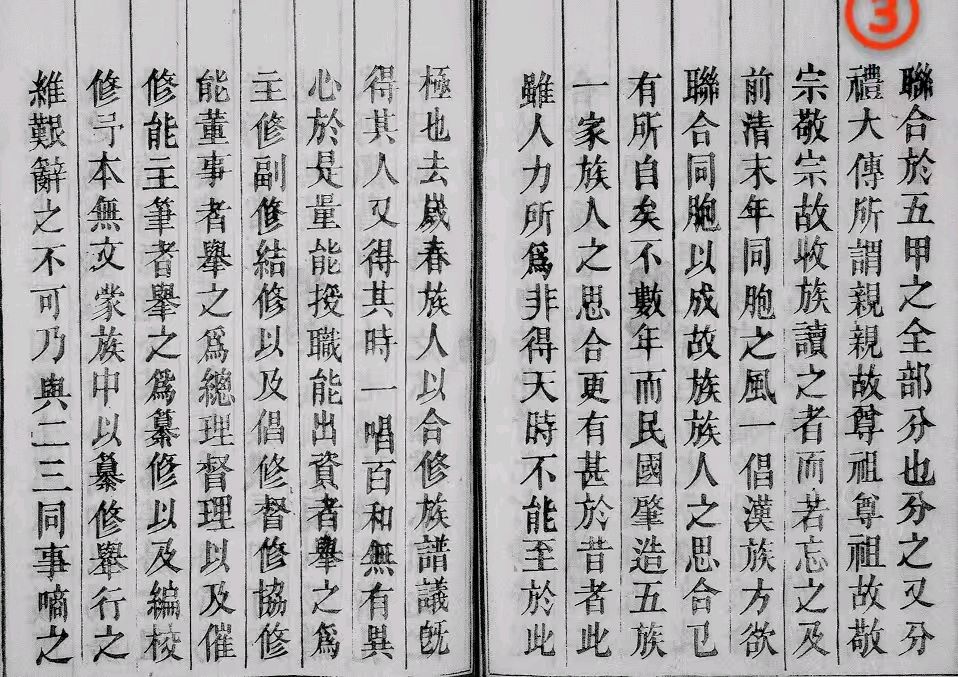 ③
聯合於五甲之全部分也分之又分
禮大傳所謂親親故尊祖尊祖故敬
宗敬宗故收族讀之者而若忘之及
前清末年同胞之風一倡漢族方欲
聯合同胞以成故族族人之思合已
有所自矣不數年而民國肇造五族
一家族人之思合更有甚於昔者此
雖人力所爲非得天時不能至於此
極也去歲春族人以合修族譜議旣
得其人又得其時一唱百和無有異
心於是量能授職能出資者舉之爲
主修副修結修以及倡修督修協修
能董事者舉之爲總理督理以及催
修能主筆者舉之爲纂修以及編校
修予本無文蒙族中以纂修舉行之
維艱辭之不可乃與二三同事啇之